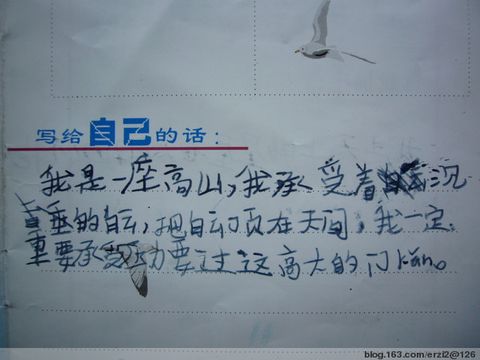 写给自己的话：
我是一座高山，我承受着沉
重的白云，把白云顶在天间，我一定
要承受 要过这高大的门kǎn。
blog.163.com/erzl2@126